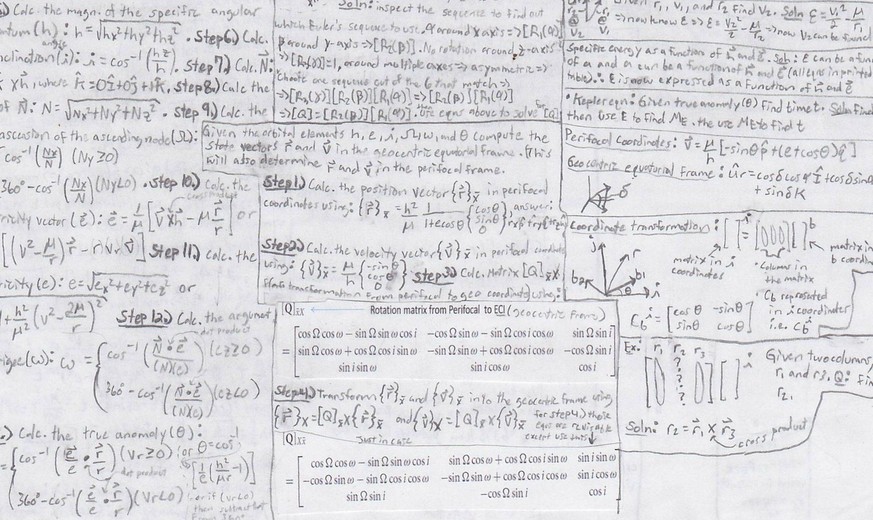 Calc. the magn. of the specific angular
momentum (h): h=√hx²+hy²+hz². Step 6.) Calc.
inclination (i): i=cos⁻¹(hz/h). Step 7.) Calc. N:
K̂ x h, where K̂=0î+0ĵ+1k̂. Step 8.) Calc the
of N⃗: N=√Nx²+Ny²+Nz². Step 9.) Calc. the
ascension of the ascending node (Ω):
cos⁻¹(Nx/N) (Ny≥0)
360°-cos⁻¹(Nx/N) (Ny<0). Step 10.) Calc. the
cross product
eccentricity vector (e⃗): e⃗=1/μ[v⃗xh⃗-μ r⃗/r] or
[(v²-μ/r)r⃗-r vr v⃗] Step 11.) Calc. the
eccentricity (e): e=√ex²+ey²+ez² or
1+h²/μ²(v²-2μ/r) Step 12.) Calc. the argument
dot product
perigee (ω): ω={cos⁻¹(N⃗•e⃗/(N)(e)) (ez≥0)
360°-cos⁻¹(N⃗•e⃗/(N)(e)) (ez<0)
Calc. the true anomoly (θ):
cos⁻¹(e⃗/e•r⃗/r) (Vr≥0) or θ=cos⁻¹[1/e(h²/μr-1)]
dot product
360°-cos⁻¹(e⃗/e•r⃗/r) (Vr<0)
or if (Vr<0)
then subtract
from 360°
Soln: inspect the sequence to find out
which Euler's sequence to use. α around x axis=>[R₁(α)]
β around y-axis=>[R₂(β)]. No rotation around z-axis
=>[R₃(γ)]=1, around multiple axes=>asymmetric=>
choose one sequence out of the 6 that match=>
=>[R₃(γ)][R₂(β)][R₁(α)]=>[R₂(β)][R₁(α)]
=>[Q]=[R₂(β)][R₁(α)]. Use eqns above to solve [Q]
Given the orbital elements h, e, i, Ω, ω, and θ compute the
state vectors r⃗ and v⃗ in the geocentric equatorial frame. (This
will also determine r⃗ and v⃗ in the perifocal frame.
Step 1.) Calc. the position vector {r⃗}x̄ in perifocal
coordinates using: {r⃗}x̄=h²/μ 1/1+ecosθ {cosθ sinθ 0} answer:
Step 2.) Calc. the velocity vector {v⃗}x̄ in perifocal coordinates
using: {v⃗}x̄=μ/h{-sinθ e+cosθ 0} Step 3.) Calc. Matrix [Q]x̄X
of the transformation from perifocal to geo coordinates using:
[Q]x̄X Rotation matrix from Perifocal to ECI (geocentric frame)
= [cos Ω cos ω − sin Ω sin ω cos i −cos Ω sin ω − sin Ω cos i cos ω sin Ω sin i
sin Ω cos ω + cos Ω cos i sin ω −sin Ω sin ω + cos Ω cos i cos ω −cos Ω sin i
sin i sin ω sin i cos ω cos i]
Step 4.) Transform {r⃗}x̄ and {v⃗}x̄ into the geocentric frame using
{r⃗}X=[Q]x̄X{r⃗}x̄ and {v⃗}X=[Q]x̄X{v⃗}x̄
for step 4.) these
eqns are reversible
except use this
[Q]Xx̄ Just in case
= [cos Ω cos ω − sin Ω sin ω cos i sin Ω cos ω + cos Ω cos i sin ω sin i sin ω
−cos Ω sin ω − sin Ω cos i cos ω −sin Ω sin ω + cos Ω cos i cos ω sin i cos ω
sin Ω sin i −cos Ω sin i cos i]
Given r₁, v₁, and r₂ Find v₂. Soln ε=v₁²/2-μ/r₁
=>now know ε=>ε=v₂²/2-μ/r₂=>now v₂ can be found
Specific energy as a function of h⃗ and e⃗. Soln: ε can be a function
of a and a can be a function of h⃗ and e⃗ (all eqns in printed
table). ∴ ε is now expressed as a function of h⃗ and e⃗
• Kepler eqn: Given true anomoly (θ) Find time t. Soln: find
then use E to find Me. the use Me to find t
Perifocal coordinates: v⃗=μ/h[-sinθp̂+(e+cosθ)q̂]
Geocentric equatorial frame: ûr=cosδcosα Î+cosδsinα
+sinδK̂
δ
Coordinate transformation: [ ]ⁱ=[000][ ]ᵇ
matrix in i
coordinates
columns in
the matrix
matrix in
b coordin
j r
b₂ b₁
θ i
Cbⁱ=[cosθ -sinθ
sinθ cosθ]
Cb represented
in i coordinates
i.e. Cbⁱ
Ex: r₁ r₂ r₃
? ? ?
Given two columns,
r₁ and r₃, Q: find
r₂.
Soln: r₂=r⃗₁ x r⃗₃
cross product